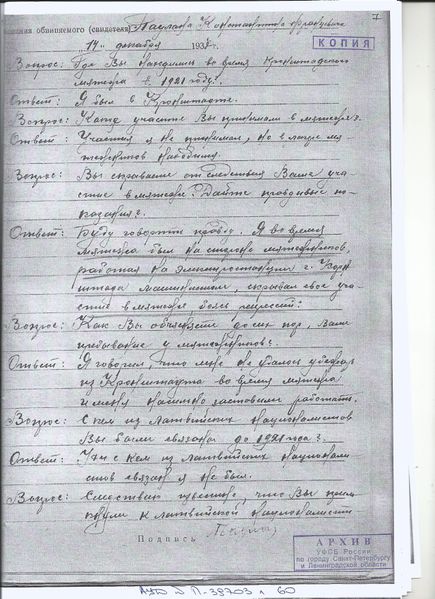 7
показания обвиняемого (свидетеля) Паулана Константина Францевича
"14" декабря 193 г.
КОПИЯ
Вопрос: Где Вы находились во время Кронштадского
мятежа в 1921 году?
Ответ: Я был в Кронштадте.
Вопрос: Какое участие Вы принимали в мятеже?
Ответ: Участия я не принимал, но в лагере мя
тежников находился.
Вопрос: Вы скрываете от следствия Ваше уча
стие в мятеже? Дайте правдивые по-
казания.
Ответ: Буду говорить правду. Я во время
мятежа был на стороне мятежников,
работая на электростанции г. Крон
штадта машинистом, скрывал свое уча
стие в мятеже боясь репрессий.
Вопрос: Как Вы объясняете до сих пор, Ваше
пребывание у мятежников?
Ответ: Я говорил, что мне не удалось
из Кронштадта во время мятежа
и меня заставили работать.
Вопрос: С кем из латвийских националистов
Вы были связаны до 1921 года?
Ответ: Ни с кем из латвийских национали
стов связан я не был.
Вопрос: Следствию известно, что Вы прим
кнули к латвийской националисти
Подпись
АРХИВ
УФСБ России
по городу Санкт-Петербургу
и Ленинградской области
П-38703 л 60